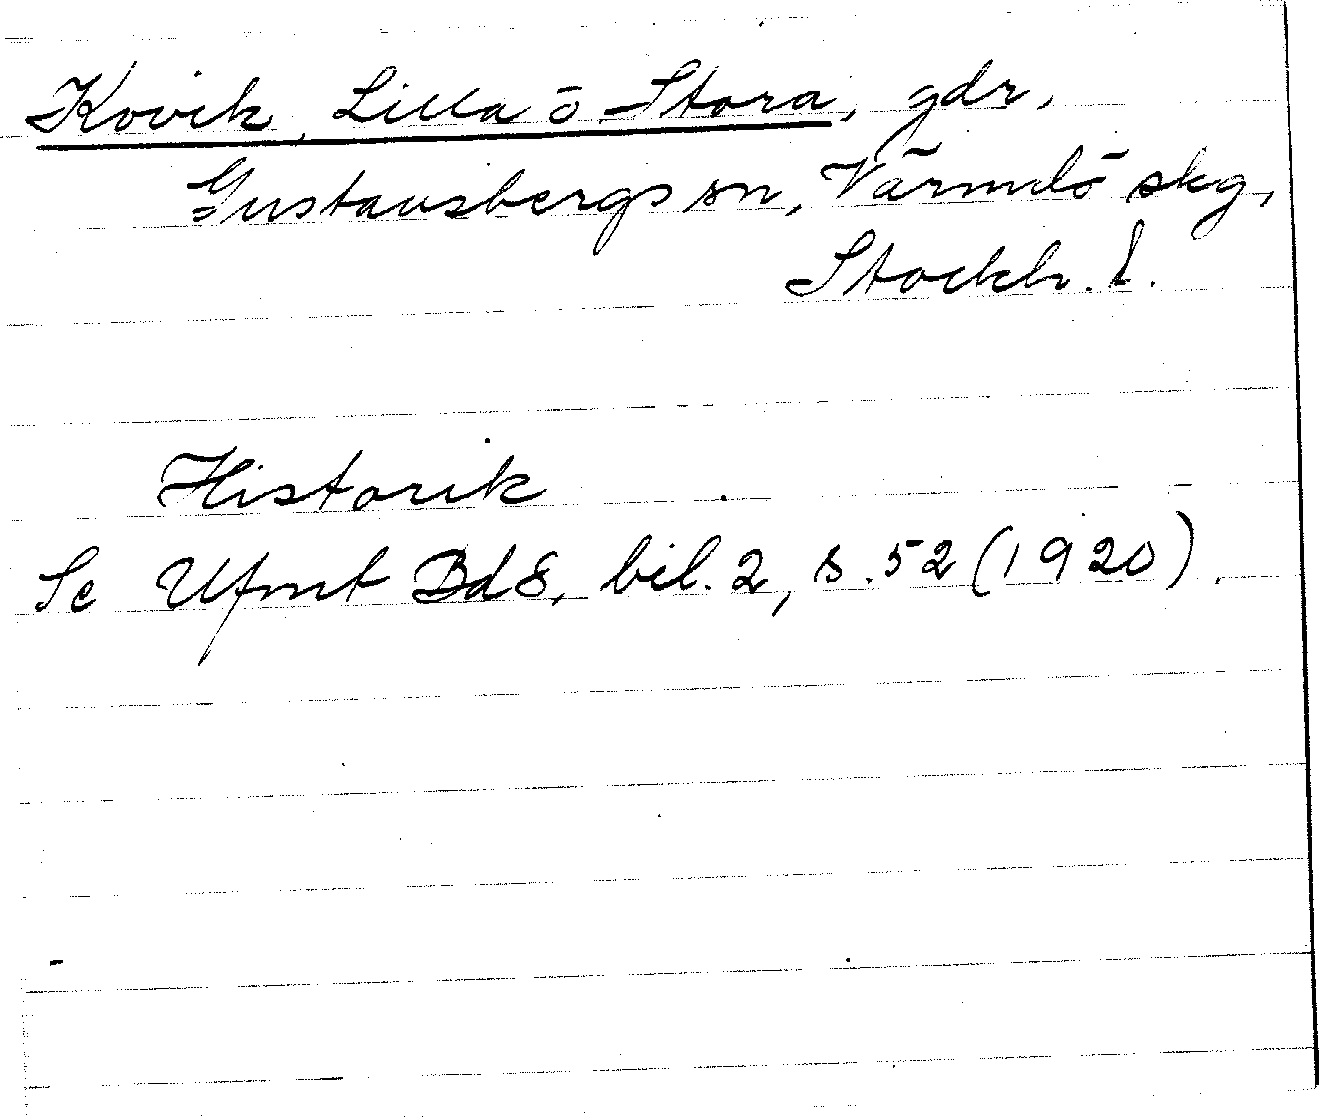 Kovik, Lilla o Stora, gdr,
Gustavsbergs sn, Värmdö skg,
Stockh. l.
Historik
Se Ufmt Bd 8, bil. 2, s. 52 (1920).